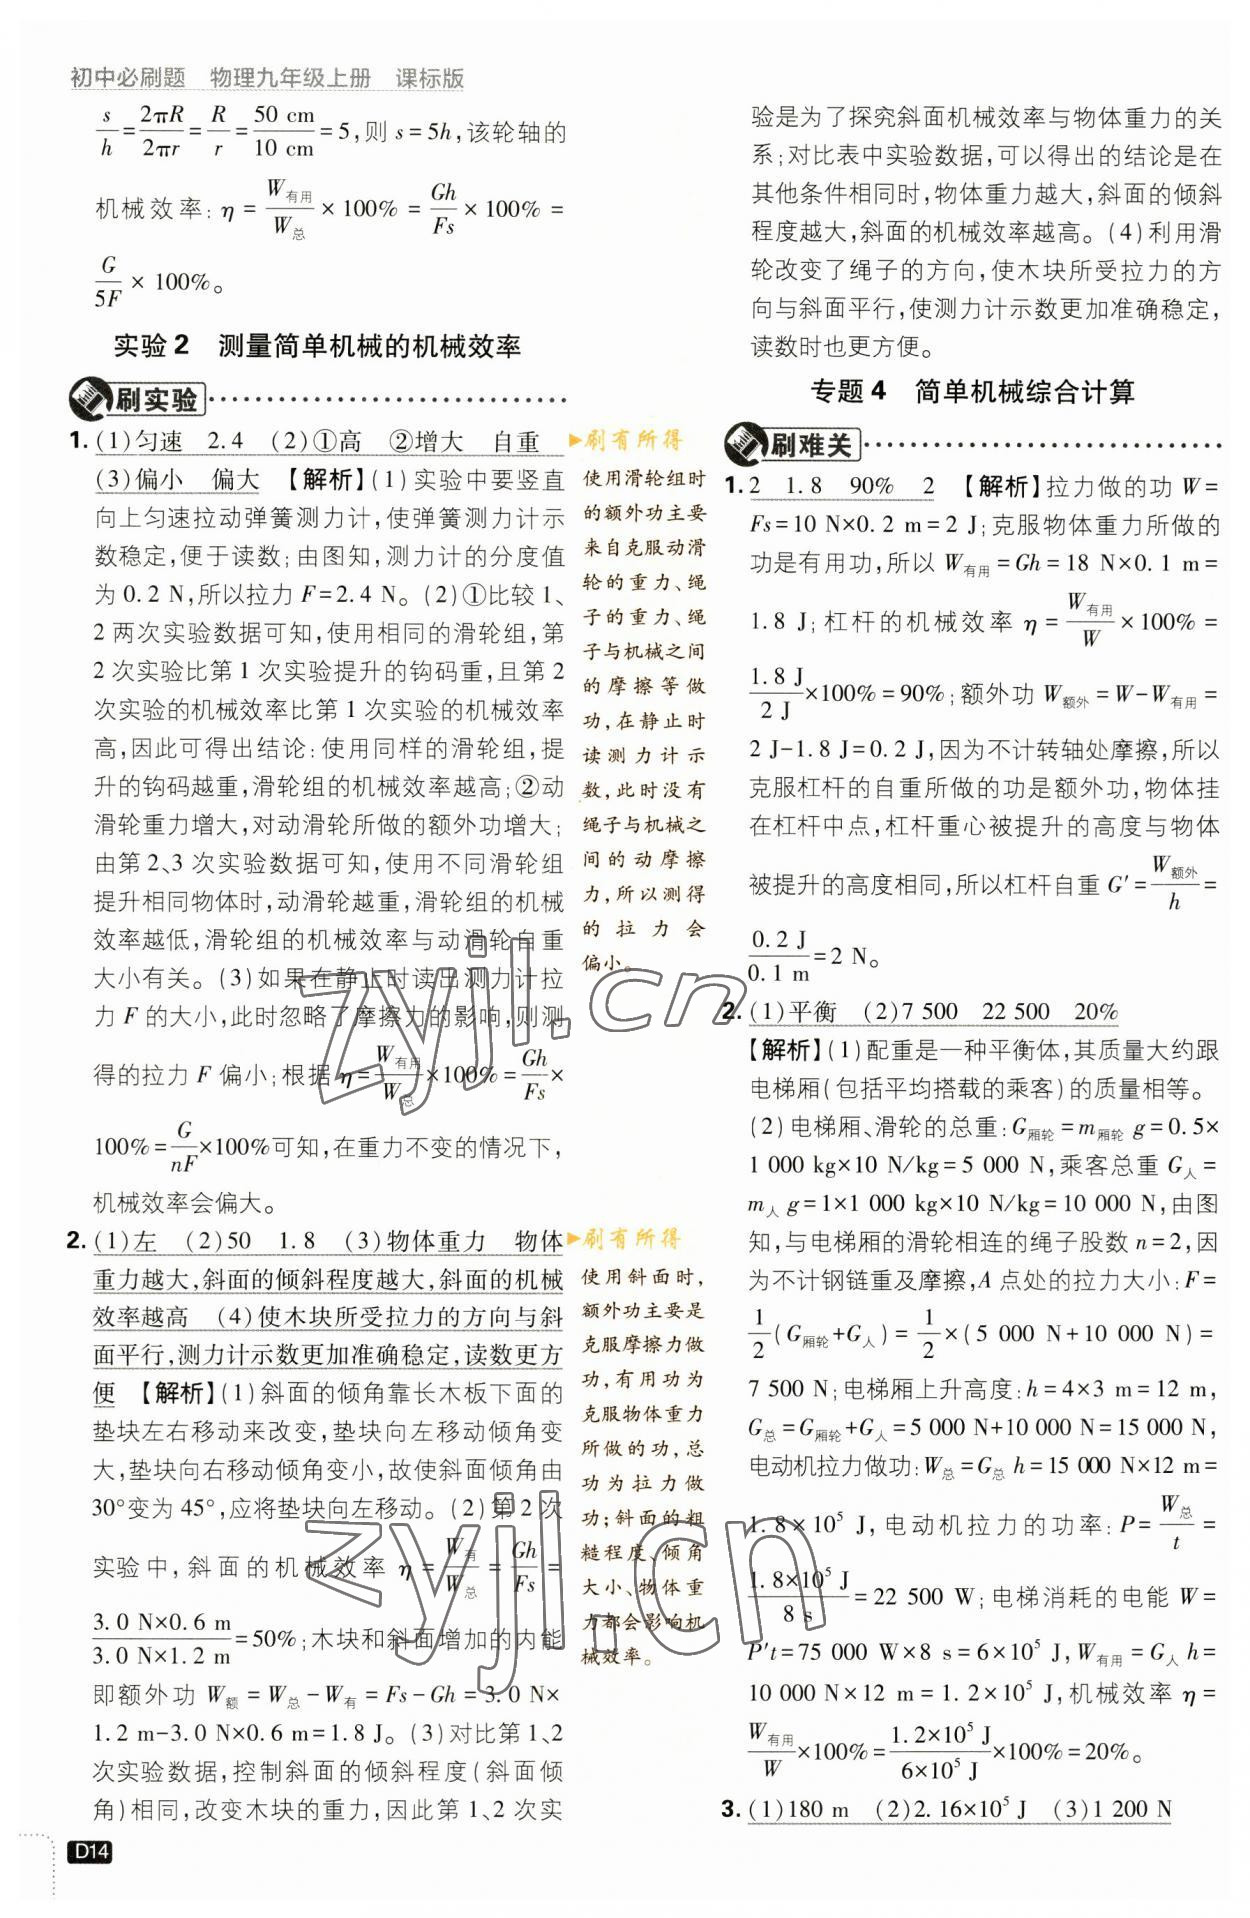 初中必刷题 物理九年级上册 课标版
s/h=2πR/2πr=R/r=50 cm/10 cm=5,则 s=5h,该轮轴的
机械效率:η=W有用/W总×100%=Gh/Fs×100%=
G/5F×100%。
实验2 测量简单机械的机械效率
刷实验
1. (1)匀速 2.4 (2)①高 ②增大 自重
(3)偏小 偏大 【解析】(1)实验中要竖直
向上匀速拉动弹簧测力计,使弹簧测力计示
数稳定,便于读数;由图知,测力计的分度值
为0.2 N,所以拉力 F=2.4 N。(2)①比较1、
2两次实验数据可知,使用相同的滑轮组,第
2次实验比第1次实验提升的钩码重,且第2
次实验的机械效率比第1次实验的机械效率
高,因此可得出结论:使用同样的滑轮组,提
升的钩码越重,滑轮组的机械效率越高;②动
滑轮重力增大,对动滑轮所做的额外功增大;
由第2、3次实验数据可知,使用不同滑轮组
提升相同物体时,动滑轮越重,滑轮组的机械
效率越低,滑轮组的机械效率与动滑轮自重
大小有关。(3)如果在静止时读出测力计拉
力 F 的大小,此时忽略了摩擦力的影响,则测
得的拉力 F 偏小;根据 η=W有用/W总×100%=Gh/Fs×
100%=G/nF×100%可知,在重力不变的情况下,
机械效率会偏大。
2. (1)左 (2)50 1.8 (3)物体重力 物体
重力越大,斜面的倾斜程度越大,斜面的机械
效率越高 (4)使木块所受拉力的方向与斜
面平行,测力计示数更加准确稳定,读数更方
便 【解析】(1)斜面的倾角靠长木板下面的
垫块左右移动来改变,垫块向左移动倾角变
大,垫块向右移动倾角变小,故使斜面倾角由
30°变为45°,应将垫块向左移动。(2)第2次
实验中,斜面的机械效率 η=W有/W总=Gh/Fs=
3.0 N×0.6 m/3.0 N×1.2 m=50%;木块和斜面增加的内能
即额外功 W额=W总-W有=Fs-Gh=3.0 N×
1.2 m-3.0 N×0.6 m=1.8 J。(3)对比第1、2
次实验数据,控制斜面的倾斜程度(斜面倾
角)相同,改变木块的重力,因此第1、2次实
刷有所得
使用滑轮组时
的额外功主要
来自克服动滑
轮的重力、绳
子的重力、绳
子与机械之间
的摩擦等做
功,在静止时
读测力计示
数,此时没有
绳子与机械之
间的动摩擦
力,所以测得
的拉力会
偏小。
刷有所得
使用斜面时,
额外功主要是
克服摩擦力做
功,有用功为
克服物体重力
所做的功,总
功为拉力做
功;斜面的粗
糙程度、倾角
大小、物体重
力都会影响机
械效率。
验是为了探究斜面机械效率与物体重力的关
系;对比表中实验数据,可以得出的结论是在
其他条件相同时,物体重力越大,斜面的倾斜
程度越大,斜面的机械效率越高。(4)利用滑
轮改变了绳子的方向,使木块所受拉力的方
向与斜面平行,使测力计示数更加准确稳定,
读数时也更方便。
专题4 简单机械综合计算
刷难关
1. 2 1.8 90% 2 【解析】拉力做的功 W=
Fs=10 N×0.2 m=2 J;克服物体重力所做的
功是有用功,所以 W有用=Gh=18 N×0.1 m=
1.8 J;杠杆的机械效率 η=W有用/W×100%=
1.8 J/2 J×100%=90%;额外功 W额外=W-W有用=
2 J-1.8 J=0.2 J,因为不计转轴处摩擦,所以
克服杠杆的自重所做的功是额外功,物体挂
在杠杆中点,杠杆重心被提升的高度与物体
被提升的高度相同,所以杠杆自重 G′=W额外/h=
0.2 J/0.1 m=2 N。
2. (1)平衡 (2)7 500 22 500 20%
【解析】(1)配重是一种平衡体,其质量大约跟
电梯厢(包括平均搭载的乘客)的质量相等。
(2)电梯厢、滑轮的总重:G厢轮=m厢轮 g=0.5×
1 000 kg×10 N/kg=5 000 N,乘客总重 G人=
m人 g=1×1 000 kg×10 N/kg=10 000 N,由图
知,与电梯厢的滑轮相连的绳子股数 n=2,因
为不计钢链重及摩擦,A 点处的拉力大小:F=
1/2(G厢轮+G人)=1/2×(5 000 N+10 000 N)=
7 500 N;电梯厢上升高度:h=4×3 m=12 m,
G总=G厢轮+G人=5 000 N+10 000 N=15 000 N,
电动机拉力做功:W总=G总 h=15 000 N×12 m=
1.8×10⁵ J,电动机拉力的功率:P=W总/t=
1.8×10⁵ J/8 s=22 500 W;电梯消耗的电能 W=
P′t=75 000 W×8 s=6×10⁵ J,W有用=G人 h=
10 000 N×12 m=1.2×10⁵ J,机械效率 η=
W有用/W×100%=1.2×10⁵ J/6×10⁵ J×100%=20%。
3. (1)180 m (2)2.16×10⁵ J (3)1 200 N
D14
zyjl.cn
zyjl.cn